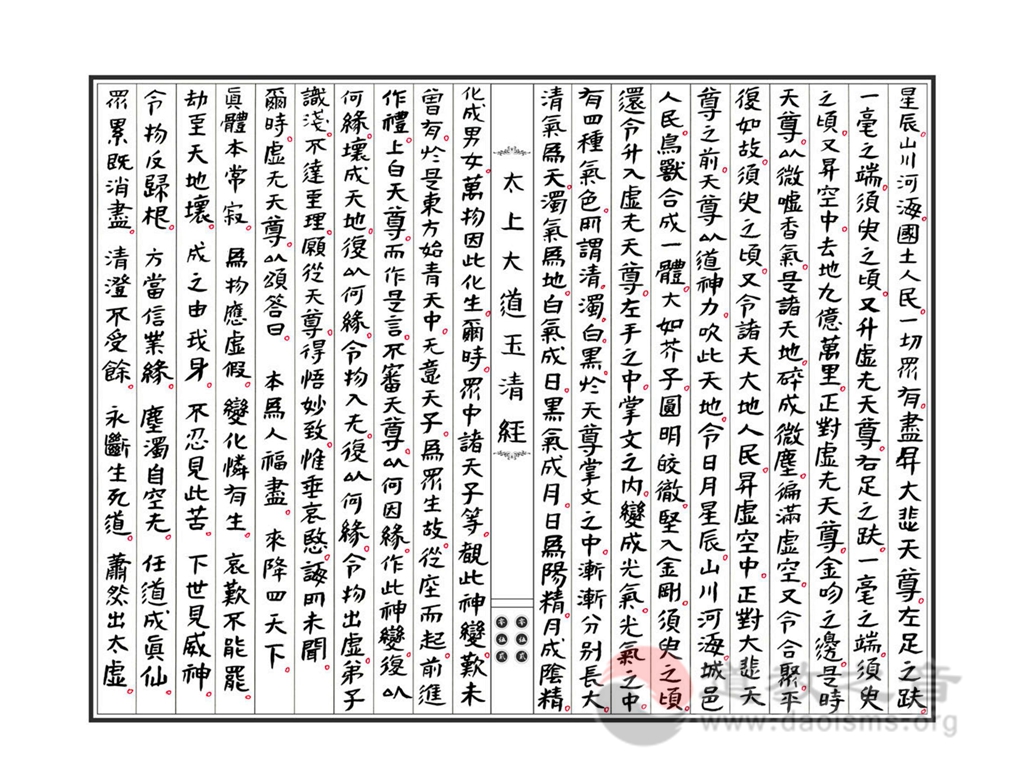 星辰。山川河海。國土人民。一切眾有。盡昇大悲天尊。左足之趺。
一毫之端。須臾之頃。又升虛无天尊。右足之趺。一毫之端。須臾
之頃。又昇空中。去地九億萬里。正對虛无天尊。金吻之邊。是時
天尊。以微噓香氣。是諸天地。碎成微塵。遍滿虛空。又令合聚。平
復如故。須臾之頃。又令諸天大地人民。昇虛空中。正對大悲天
尊之前。天尊以道神力。吹此天地。令日月星辰。山川河海。城邑
人民。鳥獸合成一體。大如芥子。圓明皎徹。堅入金剛。須臾之頃。
還令升入虛无天尊。左手之中。掌文之內。變成光氣。光氣之中。
有四種氣色。所謂清。濁。白。黑。於天尊掌文之中。漸漸分別長大。
清氣爲天。濁氣爲地。白氣成日。黑氣成月。日爲陽精。月成陰精。
太上大道玉清經
零伍貳
零伍貳
化成男女。萬物因此化生。爾時。眾中諸天子等。觀此神變。歎未
曾有。於是東方始青天中。无意天子。爲眾生故。從座而起。前進
作禮。上白天尊。而作是言。不審天尊。以何因緣。作此神變。復以
何緣。壞成天地。復以何緣。令物入无。復以何緣。令物出虛。弟子
識淺。不達至理。願從天尊。得悟妙致。惟垂哀愍。誨所未聞。
爾時。虛无天尊。以頌答曰。 本爲人福盡。 來降四天下。
眞體本常寂。 爲物應虛假。 變化憐有生。 哀歎不能罷。
劫至天地壞。 成之由我身。 不忍見此苦。 下世見威神。
令物反歸根。 方當信業緣。 塵濁自空无。 任道成眞仙。
眾累既消盡。 清澄不受餘。 永斷生死道。 蕭然出太虛。
道教之音
www.daoisms.org